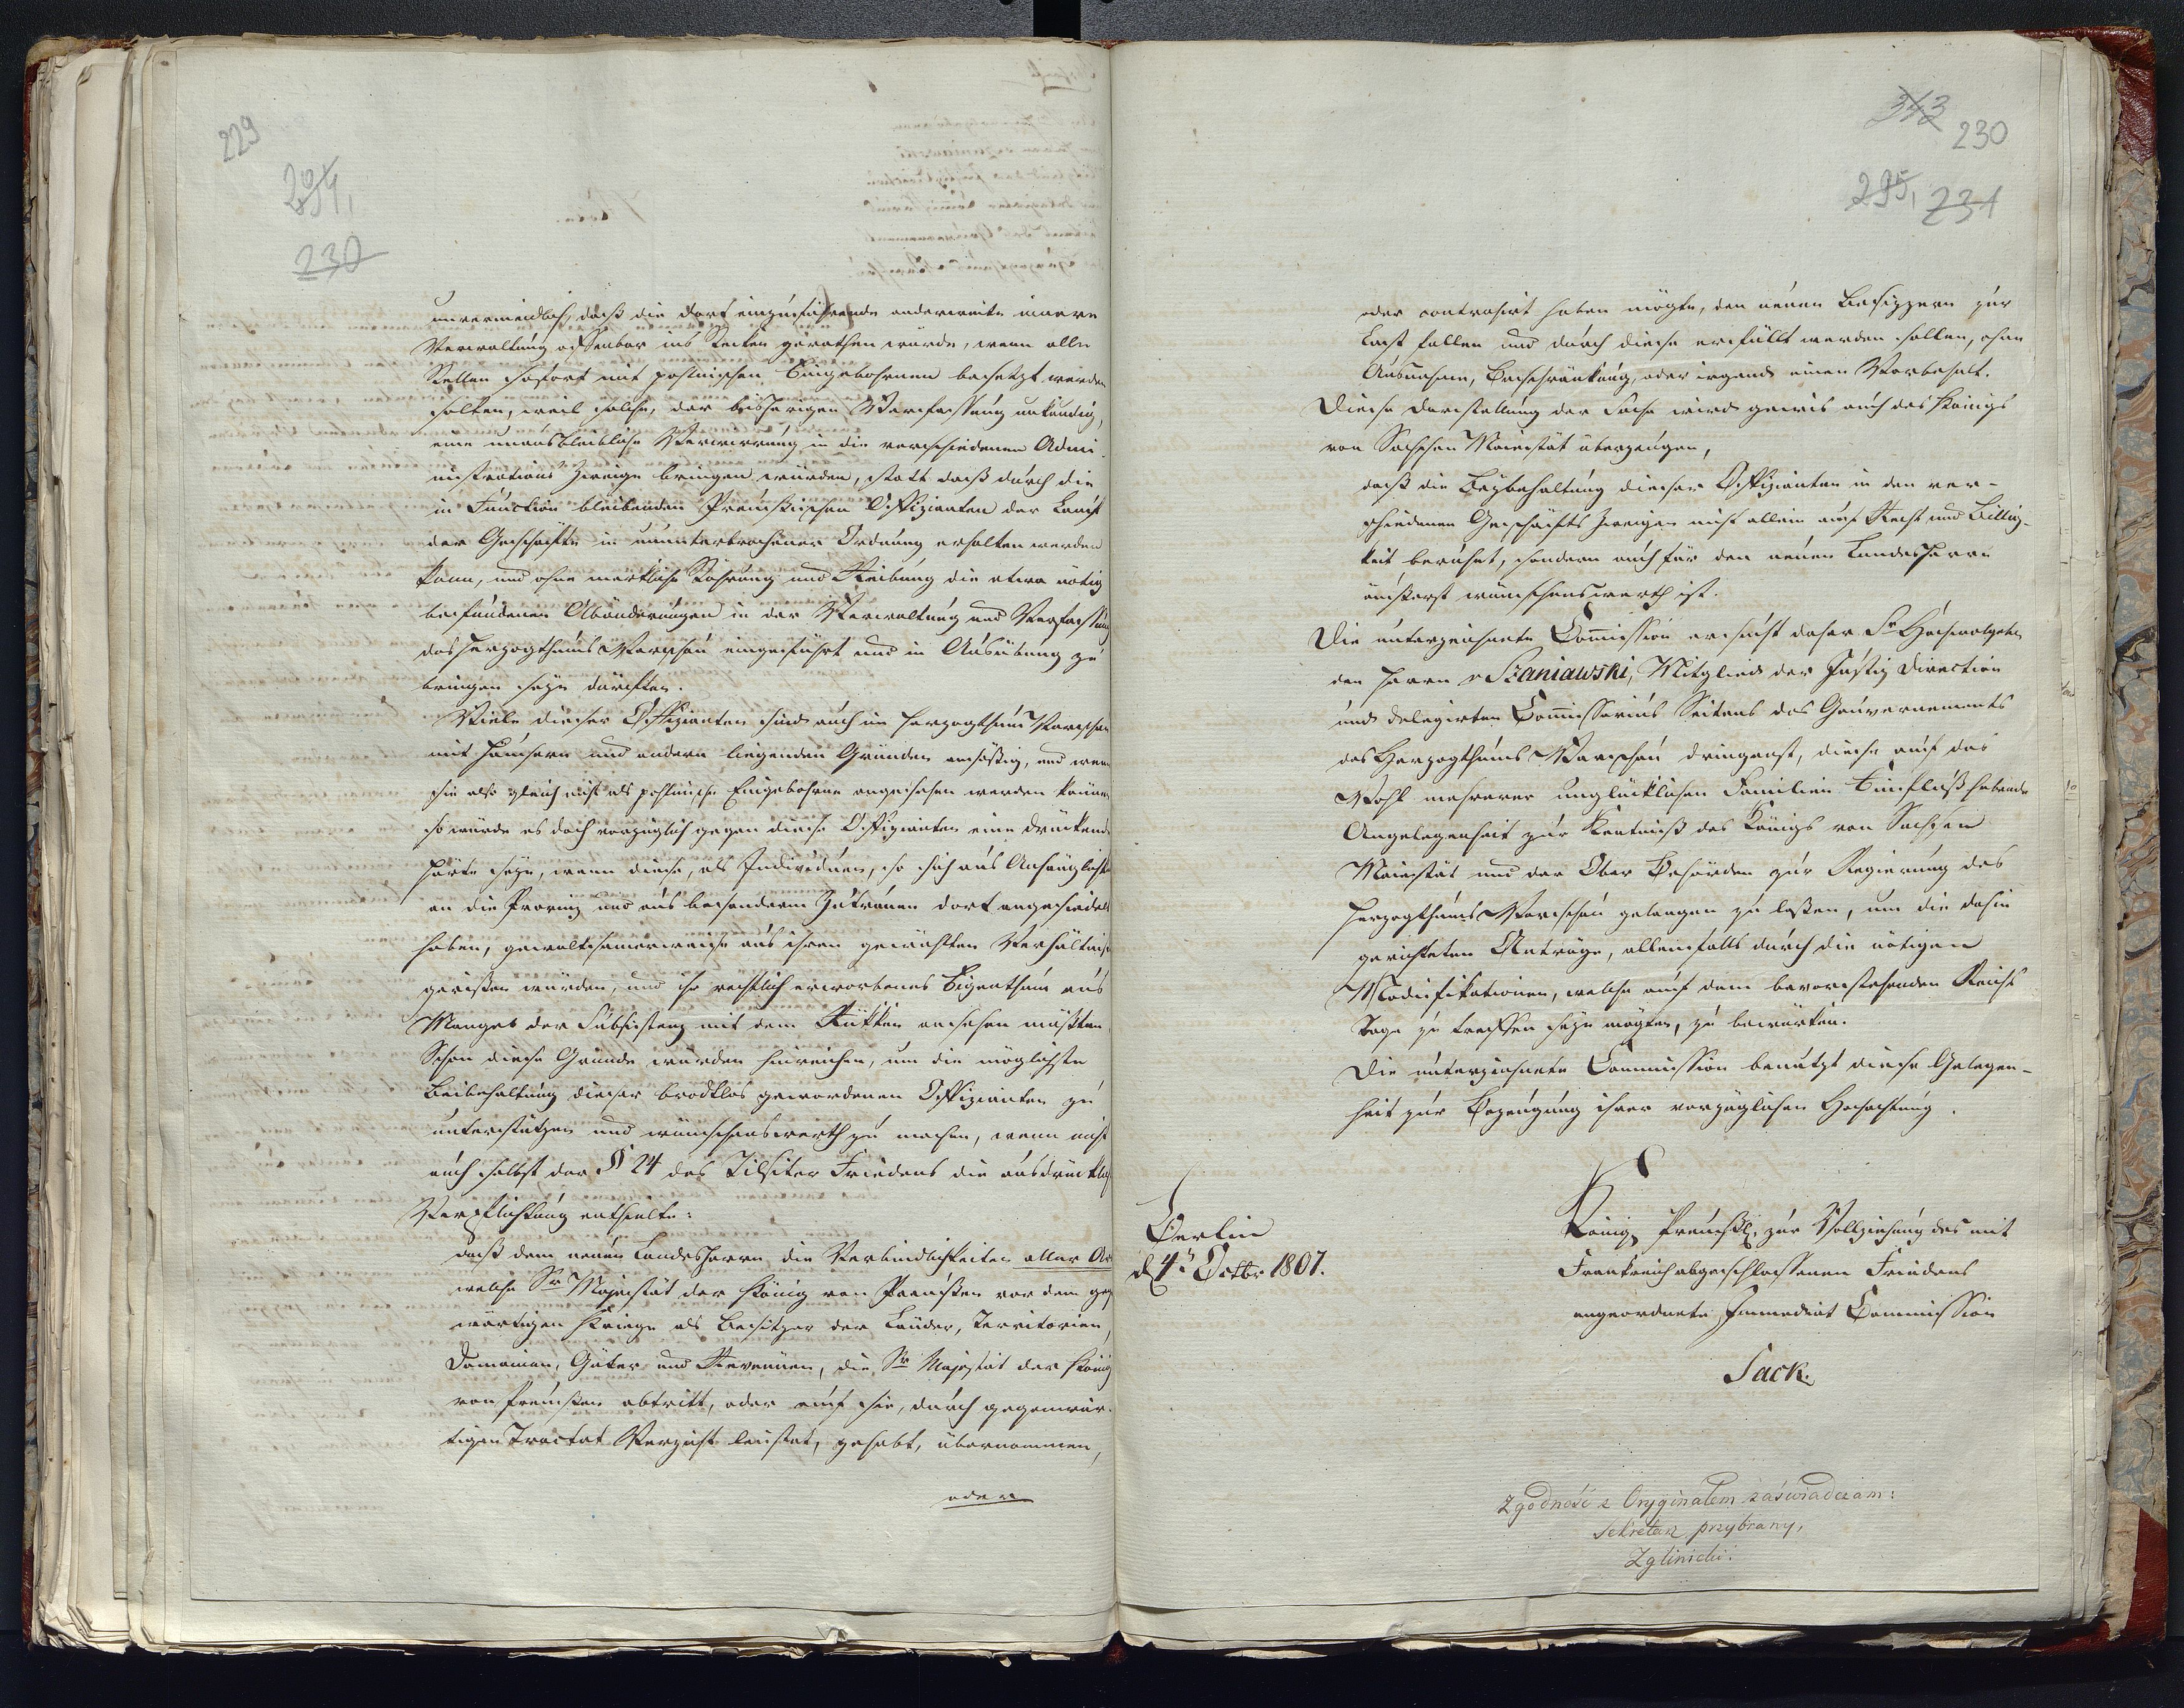 229
294,
230
unvermeidlich, daß die dort einzuführende anderweite innere
Verwaltung offenbar ins Stocken gerathen würde, wenn alle
Stellen sofort mit pohlnischen Eingebohrnen besetzt werden
solten, weil solche, der bisherigen Verfassung unkundig,
eine unausbleibliche Verwirrung in die verschiedenen Admi-
nistrations Zweige bringen würden, statt daß durch die
in Function bleibenden Preussischen Offizianten der Lauf
der Geschäfte in ununterbrochener Ordnung erhalten werden
kann, und ohne merkliche Stöhrung und Reibung die etwa nötig
befundenen Abänderungen in der Verwaltung und Verfassung
des Herzogthums Warschau eingeführt und in Ausübung zu
bringen seyn dürften.
Viele dieser Offizianten sind auch im Herzogthum Warschau
mit Häusern und andern liegenden Gründen ansäßig, und wenn
sie also gleich nicht als pohlnische Eingebohrne angesehen werden können
so würde es doch vorzüglich gegen diese Offizianten eine drückende
Härte seyn, wenn diese, als Individuen, so sich aus Anhänglichk
an die Provinz und aus besonderm Zutrauen dort angesiedelt
haben, gewaltsamerweise aus ihren gewählten Verhältniß
gerißen würden, und ihr rechtlich erworbenes Eigenthum aus
Mangel der Subsistenz mit dem Rükken ansehen müßten
Schon diese Gründe würden hinreichen, um die möglichste
Beibehaltung dieser brodtlos gewordenen Offizianten zu
unterstützen und wünschenswerth zu machen, wenn nicht
auch selbst der § 24 des Tilsiter Friedens die ausdrückliche
Verpflichtung enthielte:
daß dem neuen Landesherrn die Verbindlichkeiten aller Ar
welche Sr Majestät der König von Preußen vor dem geg
wärtigen Kriege als Besitzer der Länder, Territorien,
Domainen, Güter und Revenüen, die Sr Majestät der König
von Preußen abtritt, oder auf sie, durch gegenwär-
tigen Tractat Verzicht leistet, gehabt, übernommen,
oder
343
230
295, 231
oder contrahirt haben mögte, den neuen Besizzern zur
Last fallen und durch diese erfüllt werden sollen, ohne
Ausnahme, Beschränkung, oder irgend einen Vorbehalt.
Diese Darstellung der Sache wird gewis auch des Königs
von Sachsen Maiestät überzeugen,
daß die Beybehaltung dieser Offizianten in den ver-
schiedenen Geschäfts Zweigen nicht allein auf Recht und Billig-
keit beruhet, sondern auch für den neuen Landesherrn
äußerst wünschenswerth ist.
Die unterzeichnete Commission ersucht daher Sr Hochwolgeb.
den Herrn v Szaniawski, Mitglied der Justiz Direction
und delegirten Commissarius Seitens des Gouvernements
des Herzogthums Warschau dringenst, diese auf das
Wohl mehrerer unglücklichen Familien Einfluß habende
Angelegenheit zur Kentniß des Königs von Sachsen
Maiestät und der Ober Behörden zur Regierung des
Herzogthums Warschau gelangen zu laßen, um die dahin
gerichteten Anträge, allenfalls durch die nötigen
Modifikationen, welche auf dem bevorstehenden Reichs
Tage zu treffen seyn mögten, zu bewürken.
Die unterzeichnete Commission benutzt diese Gelegen-
heit zur Bezeugung ihrer vorzüglichen Hochachtung.
Berlin
d 4n Octbr 1807.
König Preußl, zur Vollziehung des mit
Frankreich abgeschlossenen Friedens
angeordnete Immediat Commission
Sack.
Zgodność z Oryginałem zaświadczam:
Sekretarz przybrany,
Zglinicki.